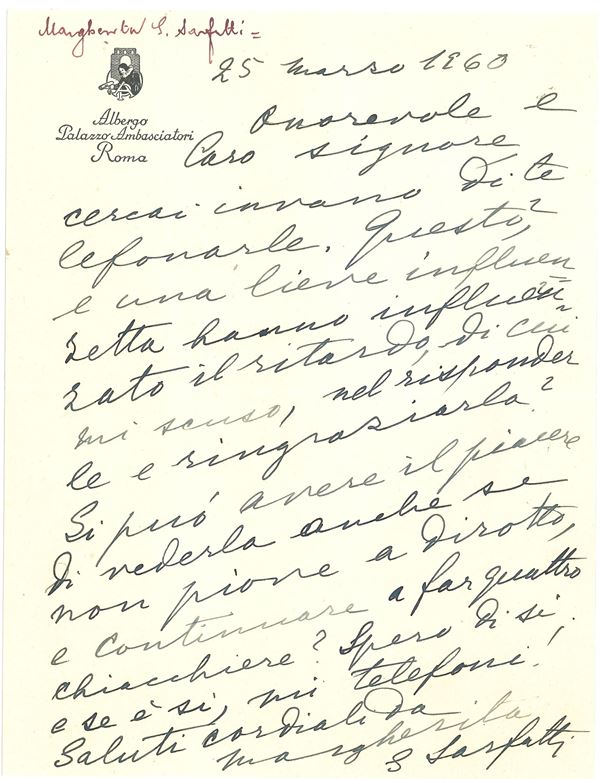 Margherita G. Sarfatti =
Albergo
Palazzo Ambasciatori
Roma
25 marzo 1960
Onorevole e
Caro signore
cercai invano di te
lefonarle. Questo,
e una lieve influen
zetta hanno influen
zato il ritardo, di cui
mi scuso, nel risponder
le e ringraziarla.
Si può avere il piacere
di vederla anche se
non piove a dirotto,
e continuare a far quattro
chiacchiere? Spero di sì,
e se è sì, mi telefoni!
Saluti cordiali da
Margherita
G Sarfatti